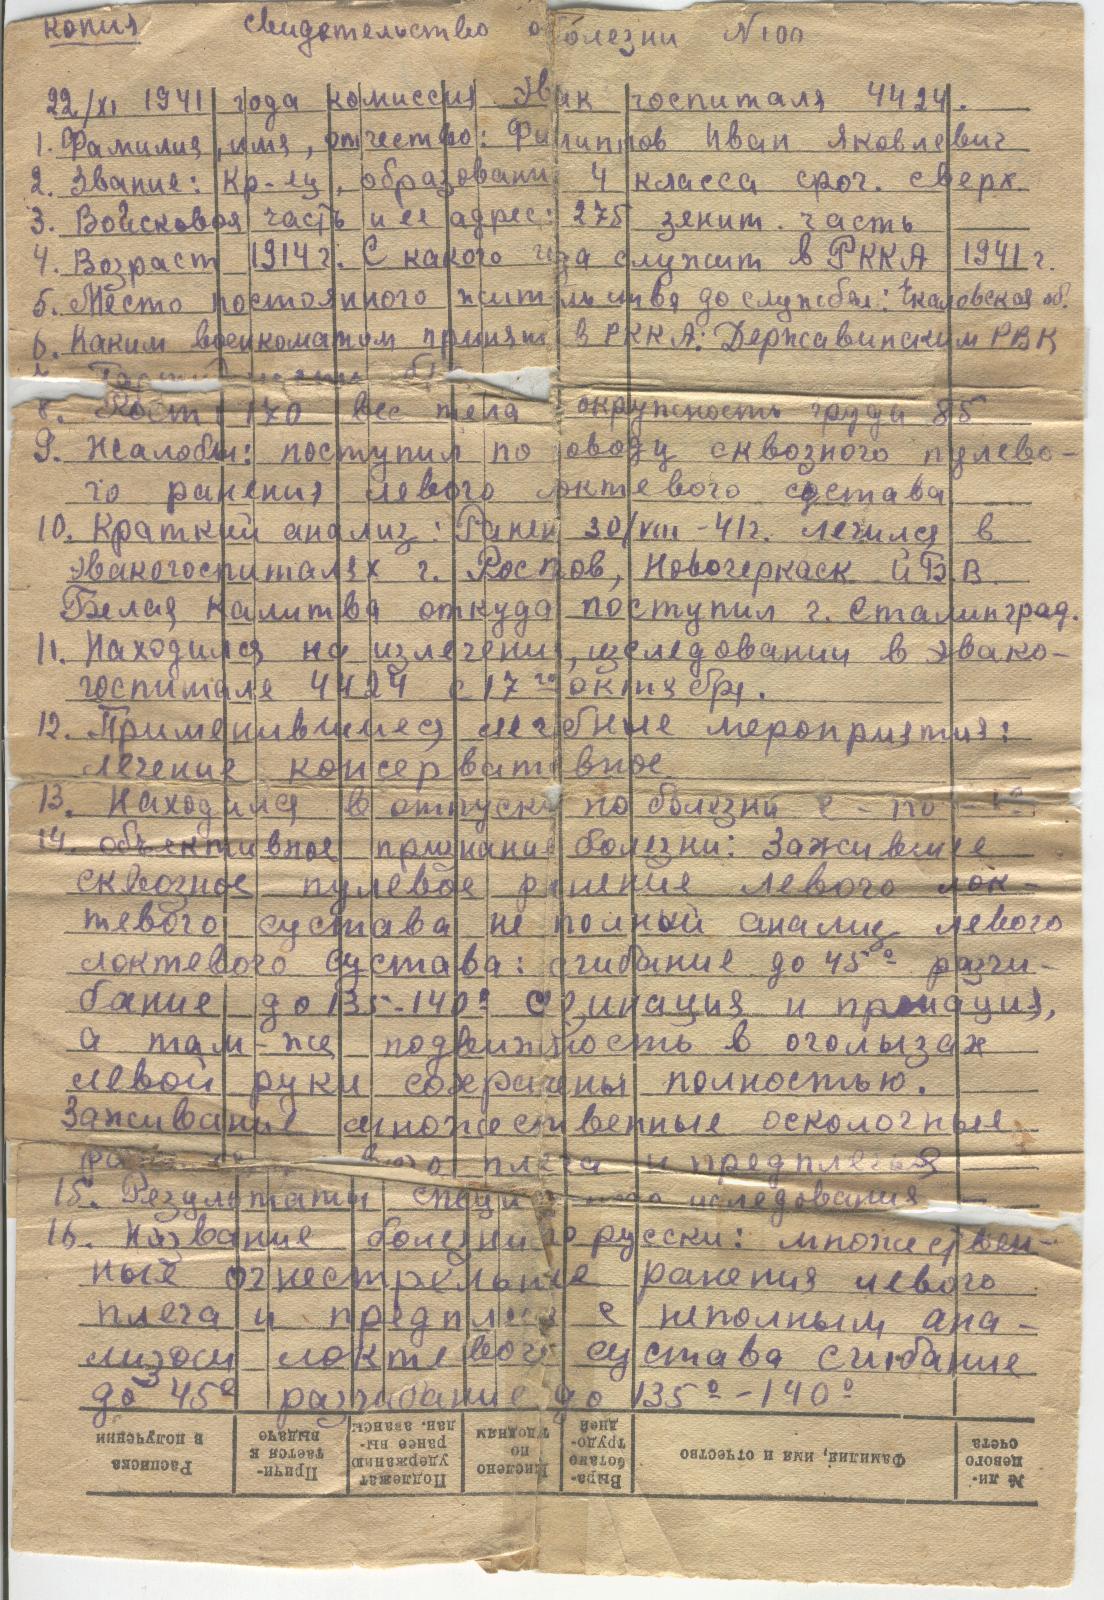 копия свидетельство о болезни N 100
22/XI 1941 года комиссия Эвак госпиталя 4424.
1. Фамилия, имя, отчество: Филиппов Иван Яковлевич
2. Звание: Кр-ец, образование 4 класса сроч. сверх.
3. Войсковоя часть и ее адрес: 275 зенит. часть
4. Возраст 1914 г. С какого года служит в РККА 1941 г.
5. Место постоянного жительства до службы: Чкаловская об.
6. Каким военкоматом принят в РККА: Державинским РВК
8. Рост 170 вес тела окружность груди 85
9. Жалобы: поступил по поводу сквозного пулево-
го ранения левого локтевого сустава
10. Краткий анализ: Ранен 30/VIII-41 г. лечился в
эвакогоспиталях г. Ростов, Новочеркаск и Б.В.
Белая калитва откуда поступил г. Сталинград.
11. Находился на излечении, иследовании в эвако-
госпитале 4424 с 17го октября.
12. Применившиеся лечебные мероприятия:
лечение консервативное
13. Находился в отпуске по болезни с - по -
14. объективное признание болезни: Зажившее
сквозное пулевое ранение левого лок-
тевого сустава не полный анализ левого
локтевого сустава: сгибание до 45° разги-
бание до 135-140° супинация и пронация,
а там-же подвижность в
левой руки сохранены полностью.
Заживание множественные осколочные
плеча и предплечья
15. Результаты иследования —
16. Название болезни по русски: множествен-
ные огнестрельные ранения левого
плеча и предплечья с неполным ана-
лизом локтевого сустава сгибание
до 45° разгибание до 135°-140°
№ ли-
цевого
счета
Фамилия, имя и отчество
Выра-
ботано
трудо-
дней
Начислено
по
трудодням
Подлежат
удержанию
ранее вы-
дан. авансы
Причи-
тается к
выдаче
Расписка
в получении